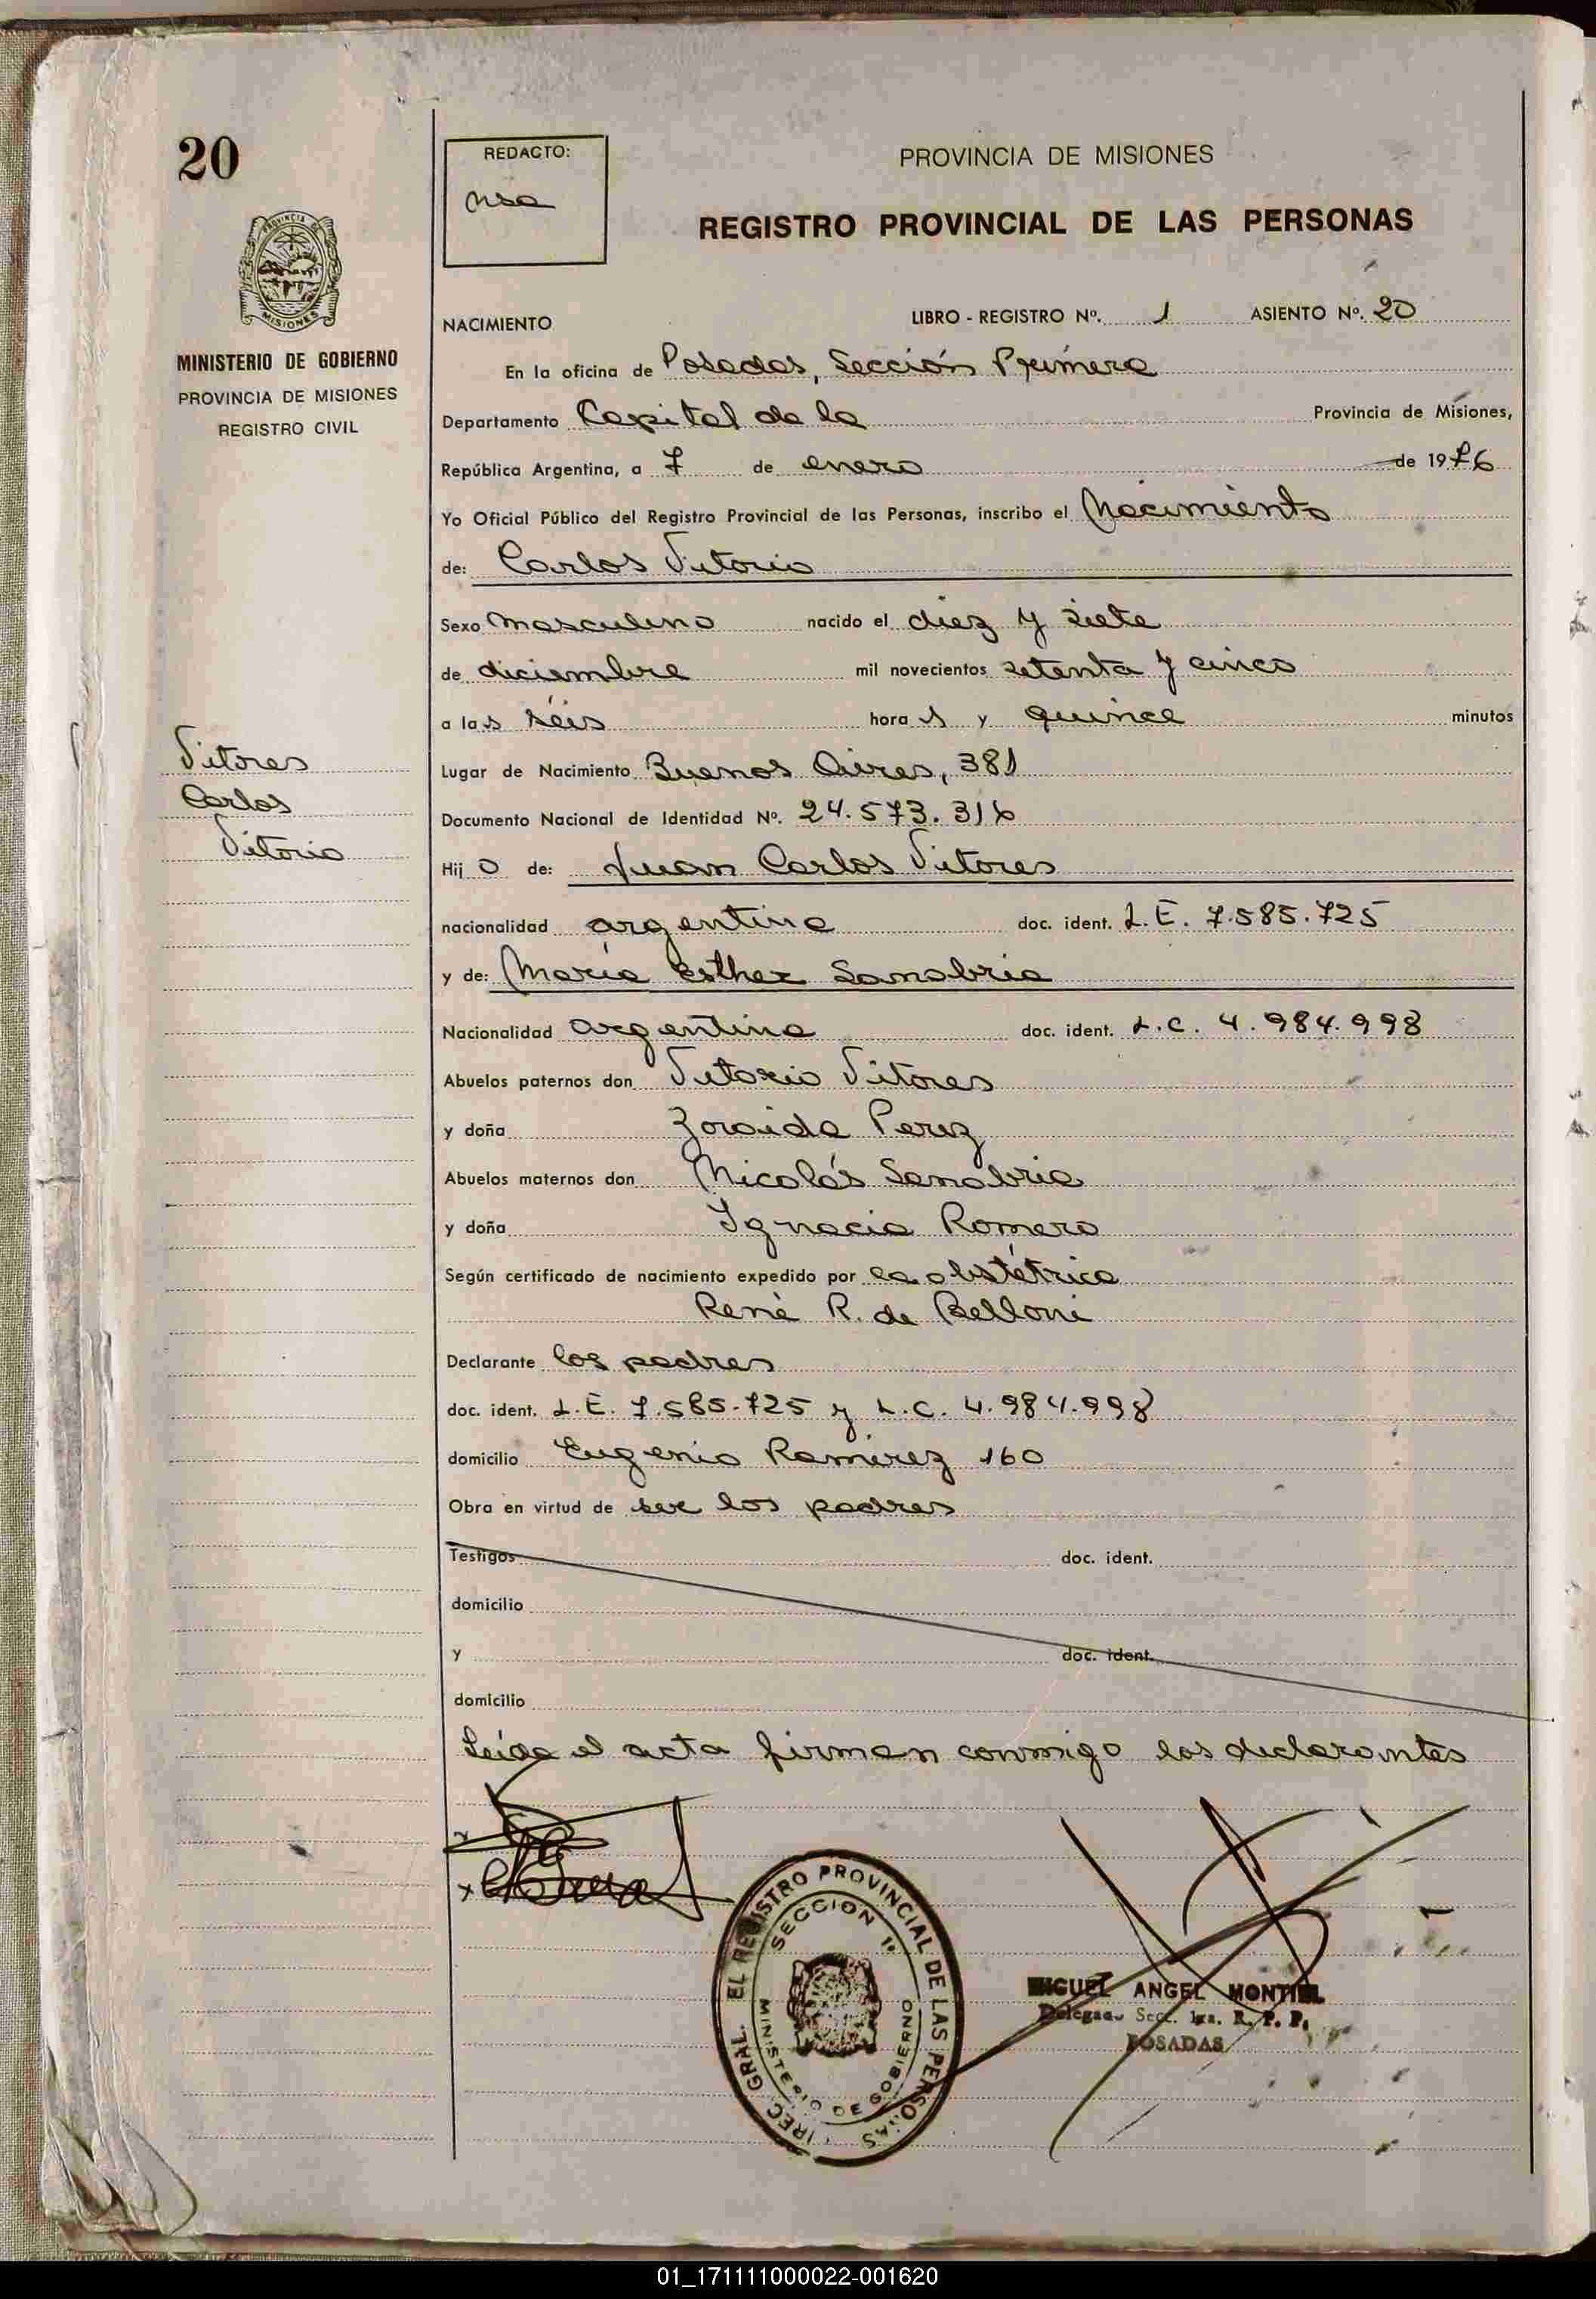 20
REDACTO:
PROVINCIA DE MISIONES
REGISTRO PROVINCIAL DE LAS PERSONAS
PROVINCIA DE
MISIONES
MINISTERIO DE GOBIERNO
PROVINCIA DE MISIONES
REGISTRO CIVIL
NACIMIENTO LIBRO - REGISTRO Nº. 1 ASIENTO Nº. 20
En la oficina de Posadas, Sección Primera
Departamento Capital de la Provincia de Misiones,
República Argentina, a 7 de enero de 1976
Yo Oficial Público del Registro Provincial de las Personas, inscribo el Nacimiento
de: Carlos Vitorio
Sexo masculino nacido el diez y siete
de diciembre mil novecientos setenta y cinco
a las seis horas y quince minutos
Vitores
Carlos
Vitorio
Lugar de Nacimiento Buenos Aires, 381
Documento Nacional de Identidad Nº. 24.573.316
Hijo de: Juan Carlos Vitores
nacionalidad argentina doc. ident. L.E. 7.585.725
y de: María Esther Sanabria
Nacionalidad argentina doc. ident. L.C. 4.984.998
Abuelos paternos don Vitorio Vitores
y doña Zoraida Perez
Abuelos maternos don Nicolás Sanabria
y doña Ignacia Romero
Según certificado de nacimiento expedido por la obstétrica
René R. de Belloni
Declarante los padres
doc. ident. L.E. 7.585.725 y L.C. 4.984.998
domicilio Eugenio Ramirez 160
Obra en virtud de ser los padres
Testigos doc. ident.
domicilio
y doc. ident.
domicilio
Leída el acta firman conmigo los declarantes
EL REGISTRO PROVINCIAL DE LAS PERSONAS
GRAL.
SECCION 1ª
MINISTERIO DE GOBIERNO
MIGUEL ANGEL MONTIEL
Delegado Secc. 1ra. R. P. P.
POSADAS
01_171111000022-001620